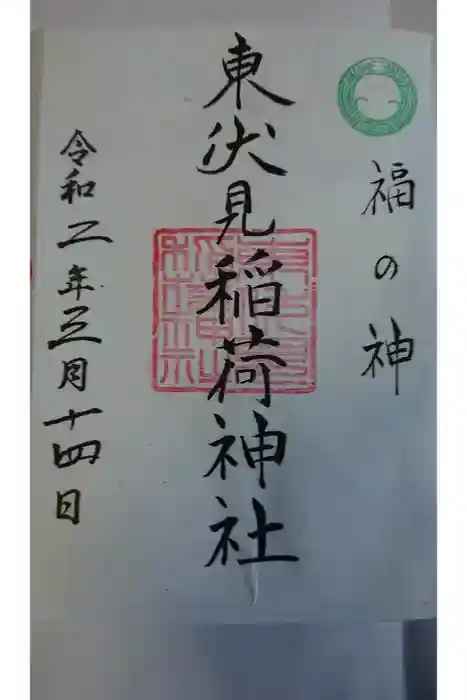 福の神
東伏見稲荷神社
令和二年三月十四日